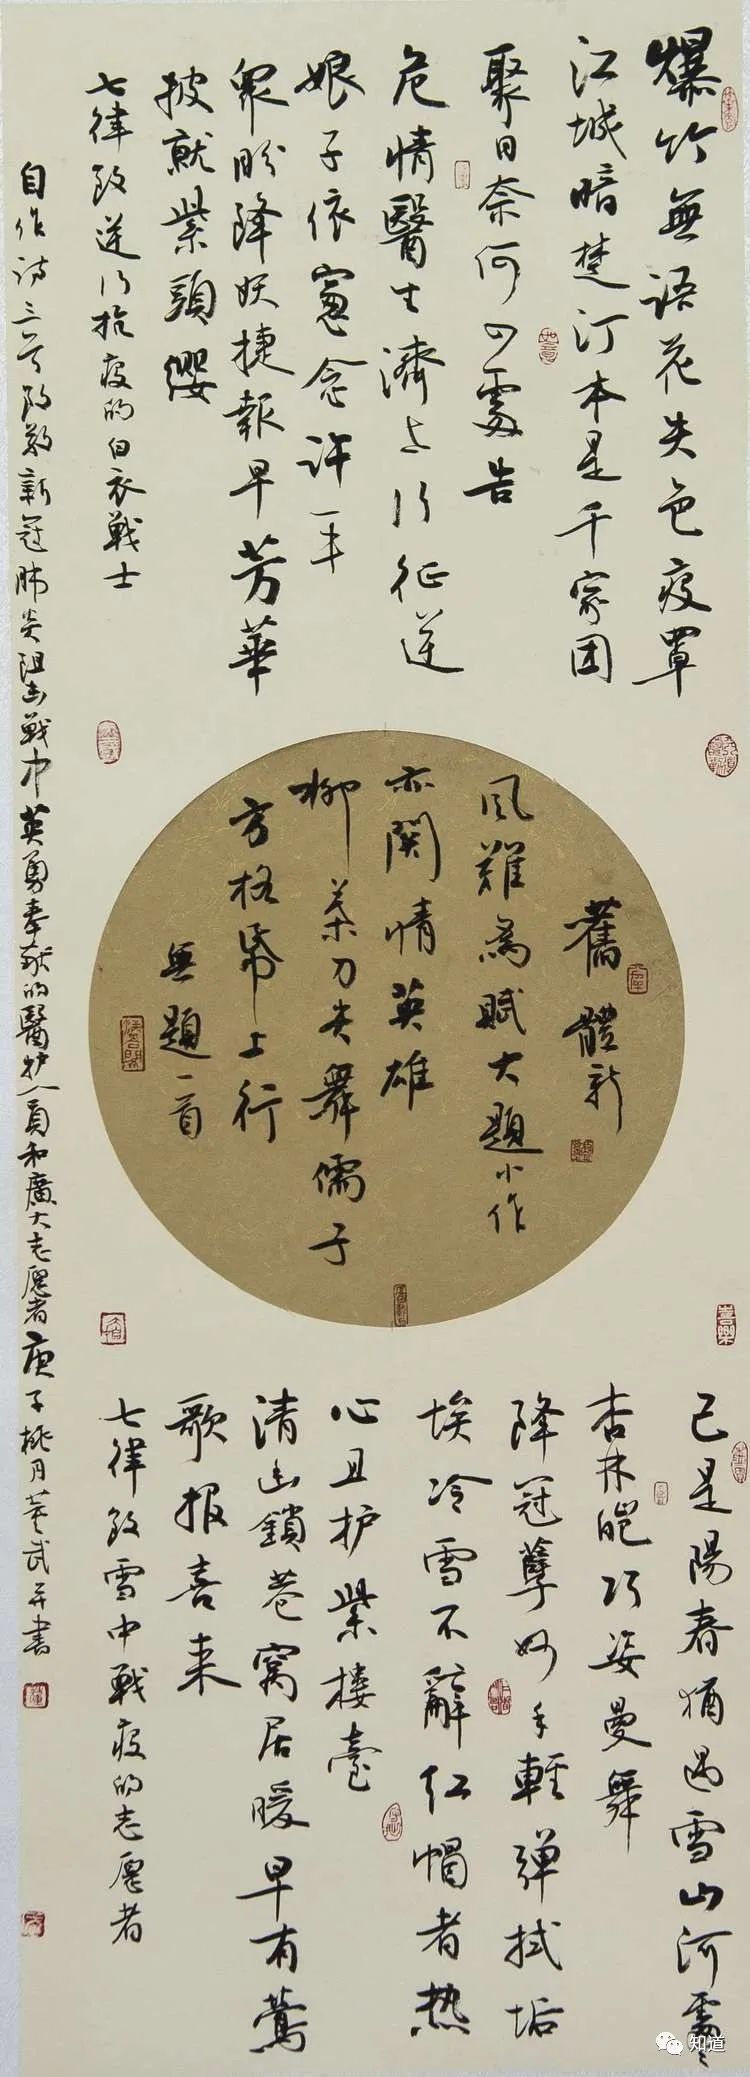 爆竹無语花失色疫罩
江城暗楚汀本是千家团
聚日奈何四處告
危情醫生濟世行征逆
娘子依窗念許
眾盼降妖捷報早芳華
披就紫頭缨
七律致逆行抗疫的白衣戰士
舊體新
風難為賦大題小作
亦関情英雄
柳葉刀尖舞儒子
方格纸上行
無題一首
已是陽春猶遇雪山河處々
杏林皑巧姿曼舞
降冠孽妙手輕弹拭垢
埃冷雪不辭红帽者热
心且护紫樓臺
清幽鎖巷窝居暖早有鶯
歌报喜来
七律致雪中戰疫的志愿者
自作诗三首致敬新冠肺炎阻击戰中英勇奉献的醫护人員和廣大志愿者庚子桃月董武并書
知道